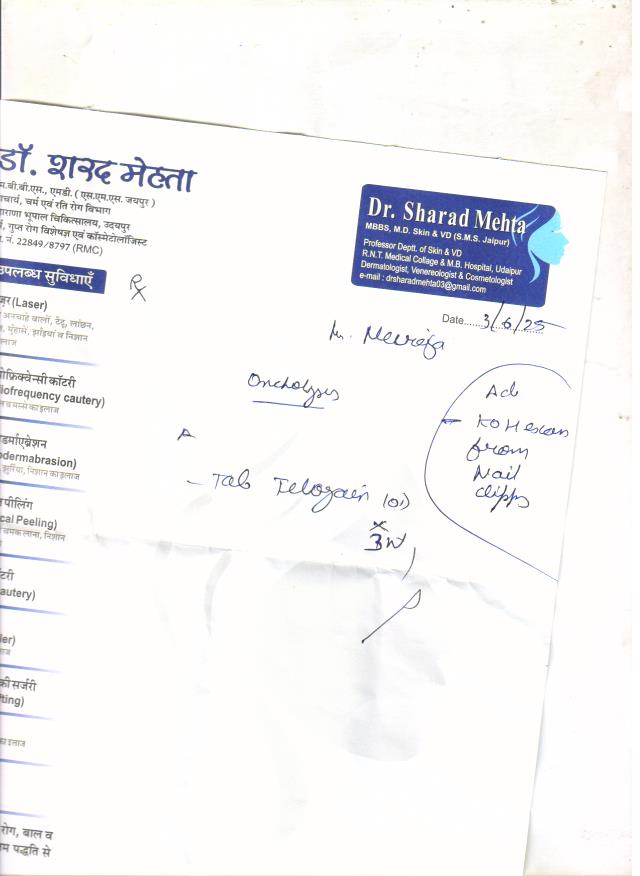 डॉ. शरद मेहता
म.बी.बी.एस., एमडी. ( एस.एम.एस. जयपुर )
चार्य, चर्म एवं रति रोग विभाग
ाराणा भूपाल चिकित्सालय, उदयपुर
, गुप्त रोग विशेषज्ञ एवं कॉस्मेटोलॉजिस्ट
. नं. 22849/8797 (RMC)
Dr. Sharad Mehta
MBBS, M.D. Skin & VD (S.M.S. Jaipur)
Professor Deptt. of Skin & VD
R.N.T. Medical Collage & M.B. Hospital, Udaipur
Dermatologist, Venereologist & Cosmetologist
e-mail : drsharadmehta03@gmail.com
Date......3/6/25
उपलब्ध सुविधाएँ
(Laser)
अनचाहे बालों, टैटू, लांछन,
मुंहासे, झाँइयां व निशान
लाज
ोफ्रिक्वेन्सी कॉटरी
iofrequency cautery)
व मस्से का इलाज
डर्माएब्रेशन
odermabrasion)
झुर्रियां, निशान का इलाज
पीलिंग
cal Peeling)
चमक लाना, निशान
ॉटरी
autery)
ler)
लाज
की सर्जरी
fting)
का इलाज
रोग, बाल व
म पद्धति से
℞
Adv
KOH
from
Nail
clipps
- Tab
3W